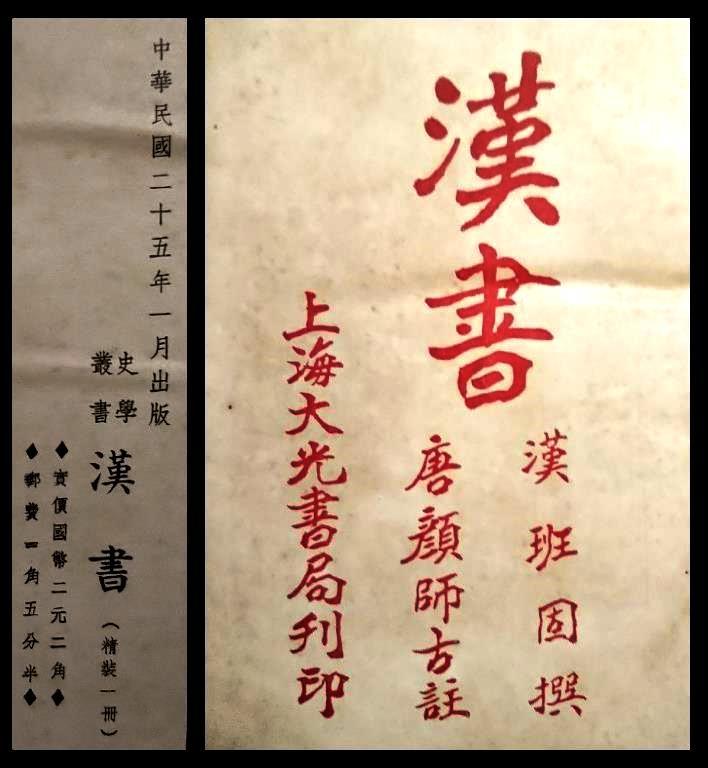 漢書
漢班固撰
唐顏師古註
上海大光書局刊印
中華民國二十五年一月出版
史學
叢書
漢書(精裝一冊)
◆實價國幣二元二角◆
◆郵費一角五分半◆